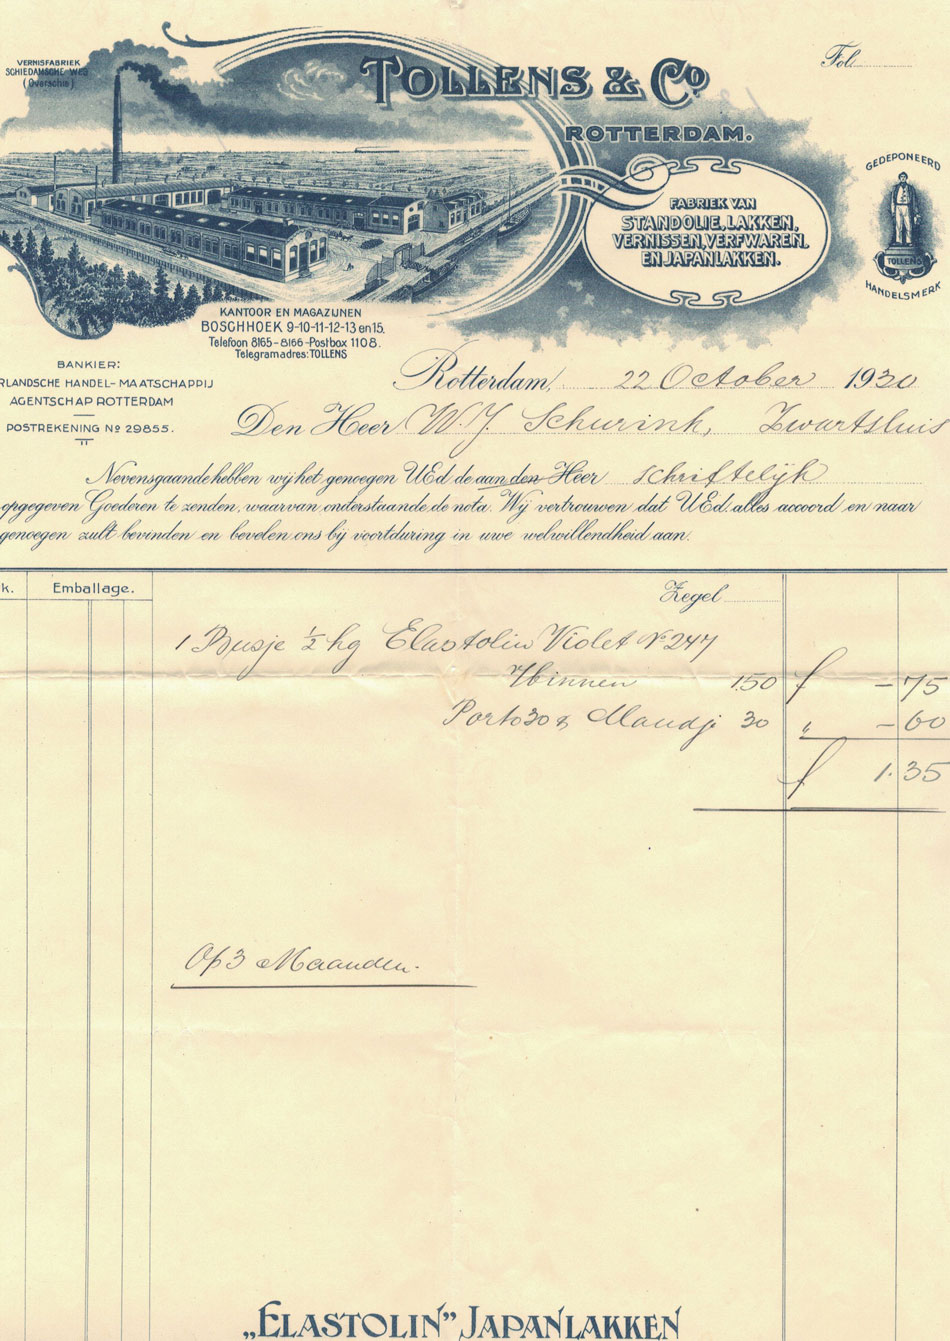 VERNISFABRIEK
SCHIEDAMSCHE WEG
(Overschie)
TOLLENS & Co
ROTTERDAM.
Fol.
FABRIEK VAN
STANDOLIE, LAKKEN,
VERNISSEN, VERFWAREN,
EN JAPANLAKKEN.
GEDEPONEERD
TOLLENS
HANDELSMERK
KANTOOR EN MAGAZIJNEN
BOSCHHOEK 9-10-11-12-13 en 15.
Telefoon 8165-8166-Postbox 1108.
Telegramadres: TOLLENS
BANKIER:
RLANDSCHE HANDEL-MAATSCHAPPIJ
AGENTSCHAP ROTTERDAM
POSTREKENING No 29855.
Rotterdam, 22 October 1930
Den Heer W.J. Schurink, Zwartsluis
Nevensgaande hebben wij het genoegen UEd de aan den Heer schriftelijk
opgegeven Goederen te zenden, waarvan onderstaande de nota. Wij vertrouwen dat UEd. alles accoord en naar
genoegen zult bevinden en bevelen ons bij voortduring in uwe welwillendheid aan.
k. Emballage. Zegel
1 Busje ½ kg Elastolin Violet No 247
Binnen 150 f -75
Porto 30 & Mandje 30 " -60
f 1.35
Op 3 Maanden.
„ELASTOLIN” JAPANLAKKEN